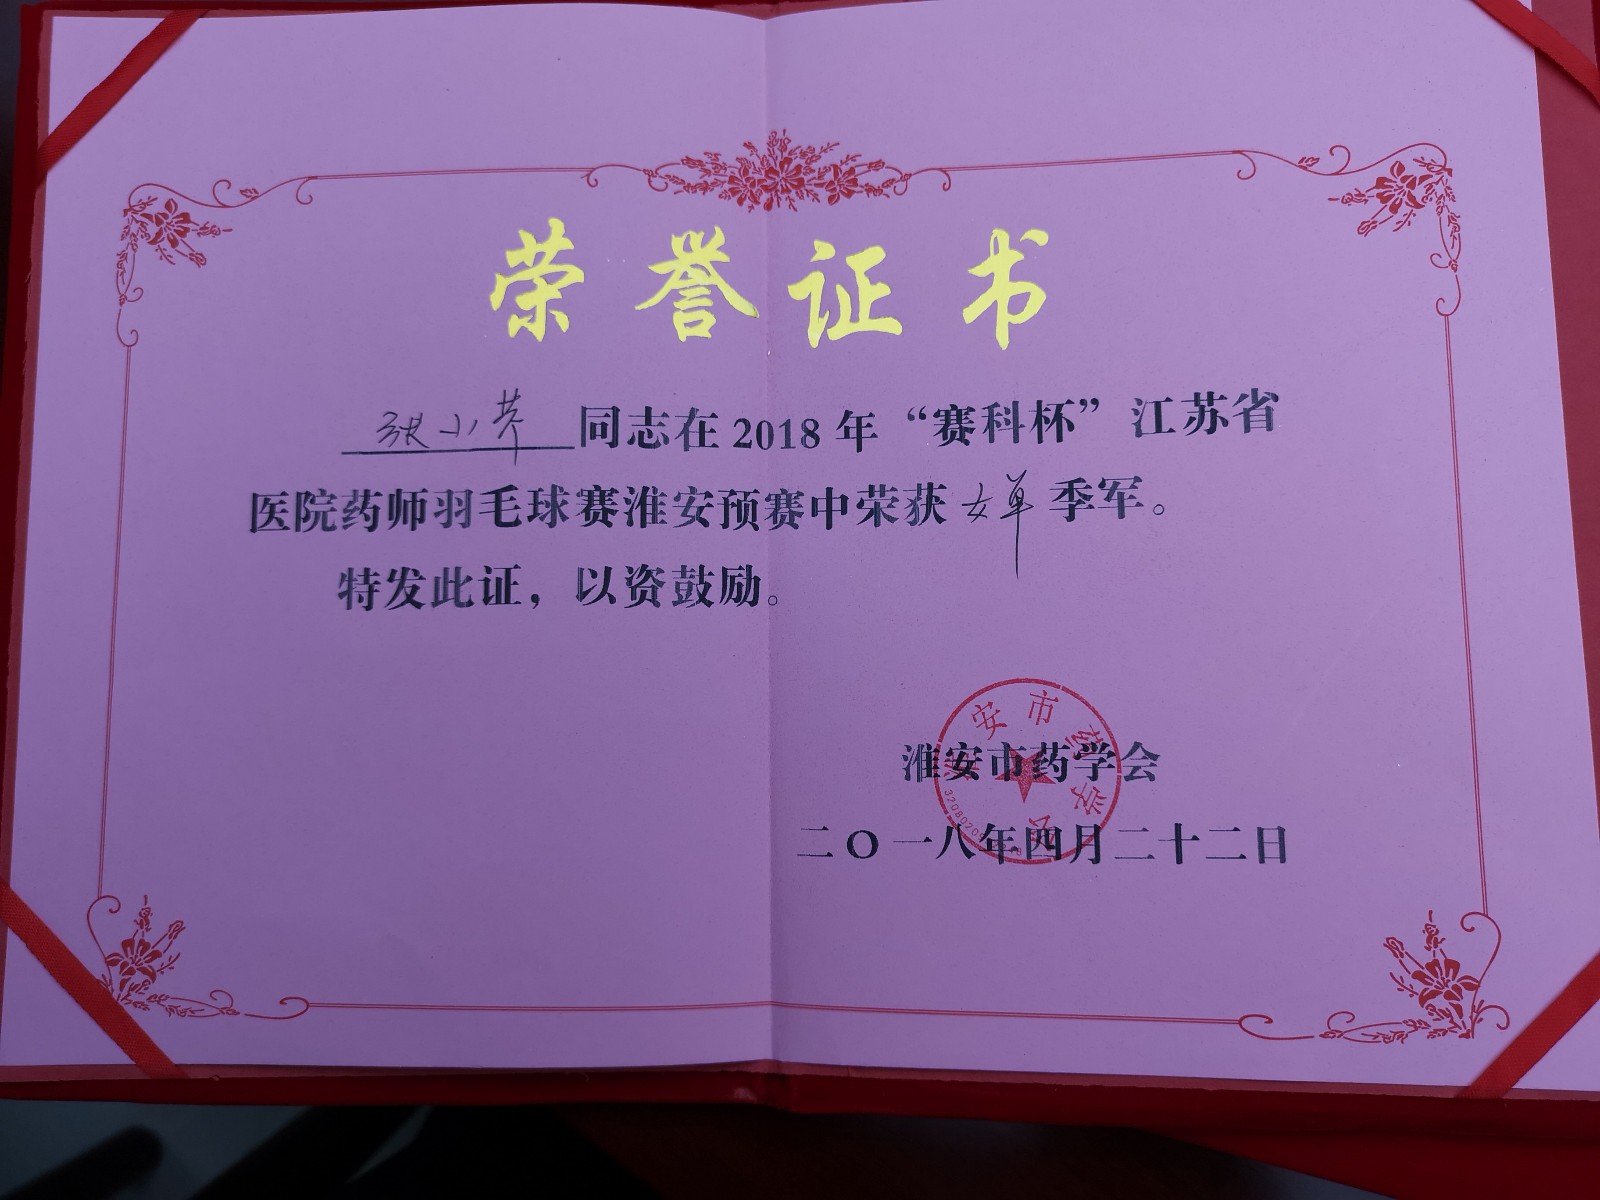 荣誉证书
张小芹同志在2018年“赛科杯”江苏省
医院药师羽毛球赛淮安预赛中荣获女单季军。
特发此证，以资鼓励。
淮安市药学会
二〇一八年四月二十二日
淮安市药学会